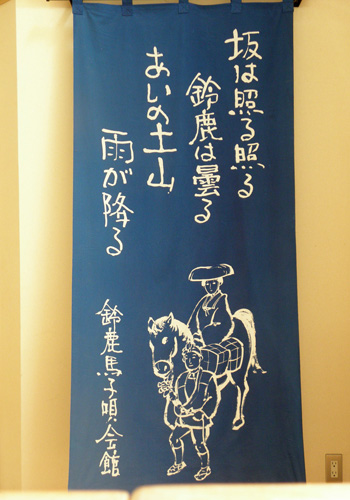 坂は照る照る
鈴鹿は曇る
あいの土山
雨が降る
鈴鹿馬子唄会館